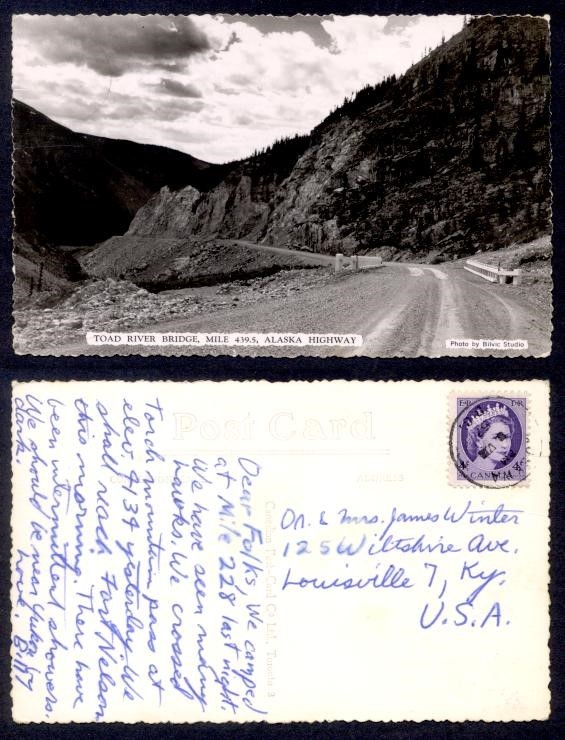 TOAD RIVER BRIDGE, MILE 439.5, ALASKA HIGHWAY
Photo by Bilvic Studio
Post Card
ADDRESS
Dear Folks, We camped
at Mile 228 last night.
We have seen many
hawks. We crossed
mountain pass at
elev. 4134 yesterday. We
shall reach Fort Nelson
this morning. There have
been intermittent showers.
We should be near Yukon by
dark. Love, Bill
Coast Card Co Ltd., Toronto 3
E II R
CANADA
Dr. & Mrs. James Winter
125 Wiltshire Ave.
Louisville 7, Ky.
U.S.A.